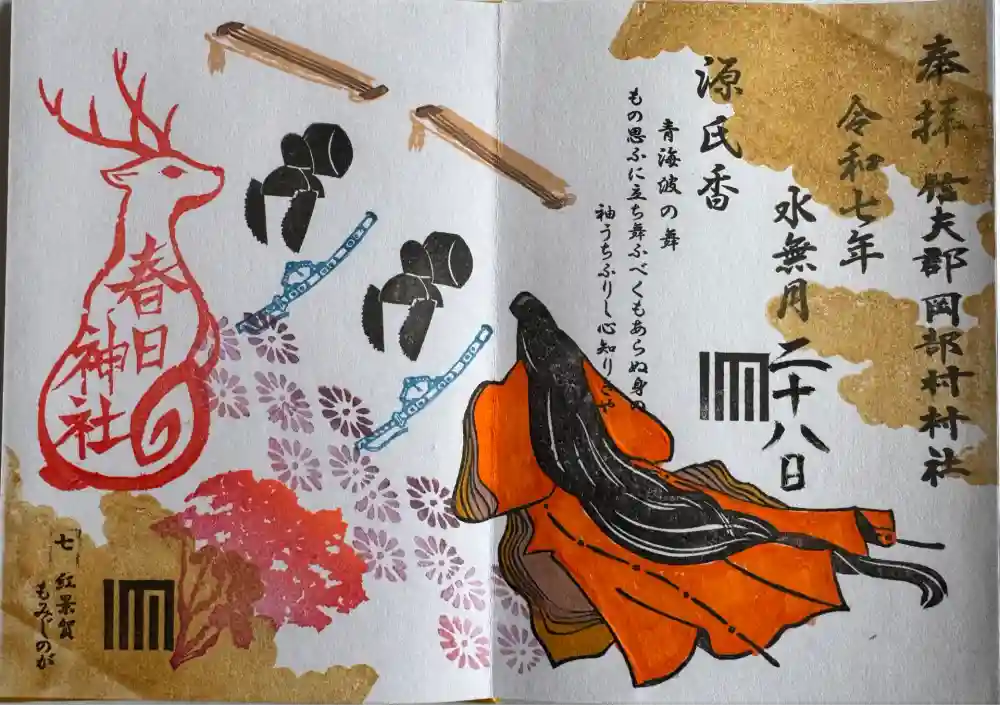 奉拝 竹夫郡岡部村村社
令和七年
水無月二十八日
源氏香
青海波の舞
もの思ふに立ち舞ふべくもあらぬ身の
袖うちふりし心知りきや
春日
神社
七 紅葉賀
もみじのが